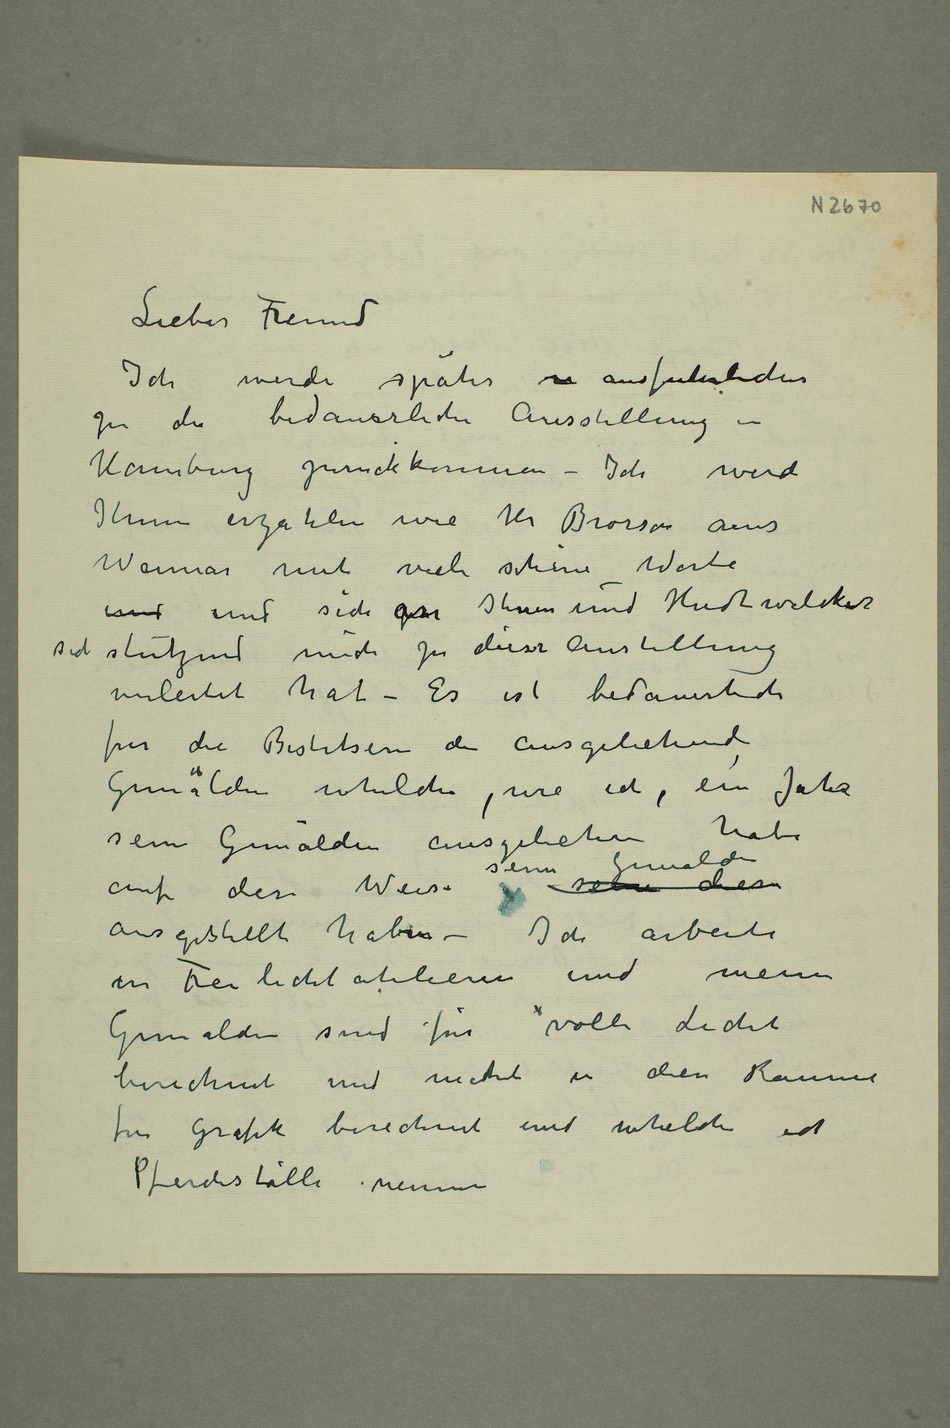 N 2670
Lieber Freund
Ich werde später in ausfuhrlicher
zu die bedauerliche Ausstellung in
Hamburg zurückkommen – Ich werd
Ihnen erzählen wie Hr Brorson aus
Weimar mit viele schöne Worte
und und sich zu Ihnen und Hudtwalcker
sich stützend mich zu dieser Austellung
verleitet hat – Es ist bedauerlich
fur die Bestitsern die ausgeliehende
Gemälden whelche, wie ich, ein Jahr
sein Gemälden ausgeliehen habe
auf dese Weise seine Gemälde seine diese
ausgestellt haben – Ich arbeite
in Freilichtatelieren und meine
Gemälden sind für volle Licht
berechnet und nicht in dien Raume
fur Grafik berechnet und whelche ich
Pferdeställe nenne